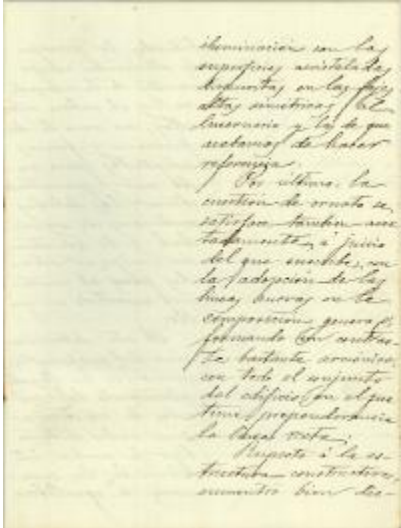 iluminación con las
superficies acristaladas
descritas en las fajas
altas simétricas al
lucernario y las de que
acabamos de hacer
referencia.
Por último, la
cuestión de ornato se
satisface tambien acer
tadamente, á juicio
del que suscribe, con
la adopción de las
lineas curvas en la
composición general,
formando un contras-
te bastante armónico
con todo el conjunto
del edificio en el que
tiene preponderancia
la linea recta.
Respecto á la es-
tructura constructiva,
encuentro bien des-